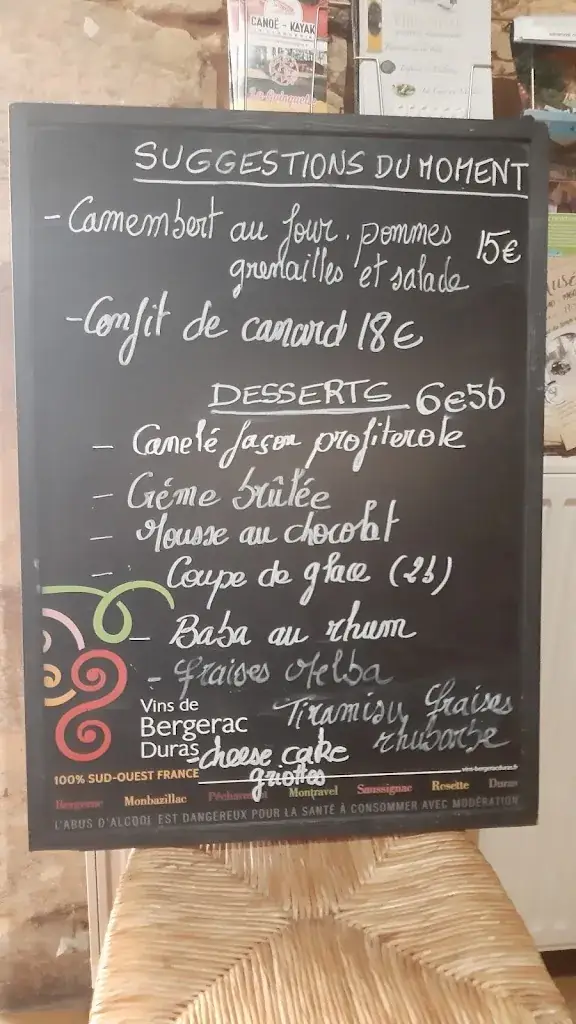 CANOË - KAYAK
SUGGESTIONS DU MOMENT
- Camembert au four. pommes
grenailles et salade 15€
- Confit de canard 18€
DESSERTS 6€50
- Canelé façon profiterole
- Créme brûlée
- Mousse au chocolat
- Coupe de glace (2b)
- Baba au rhum
- fraises Melba
Tiramisu fraises
rhubarbe
- cheese cake
griottes
Vins de
Bergerac
Duras
100% SUD-OUEST FRANCE
www.vins-bergeracduras.fr
Bergerac Monbazillac Pécharmant Montravel Saussignac Rosette Duras
L'ABUS D'ALCOOL EST DANGEREUX POUR LA SANTÉ À CONSOMMER AVEC MODÉRATION